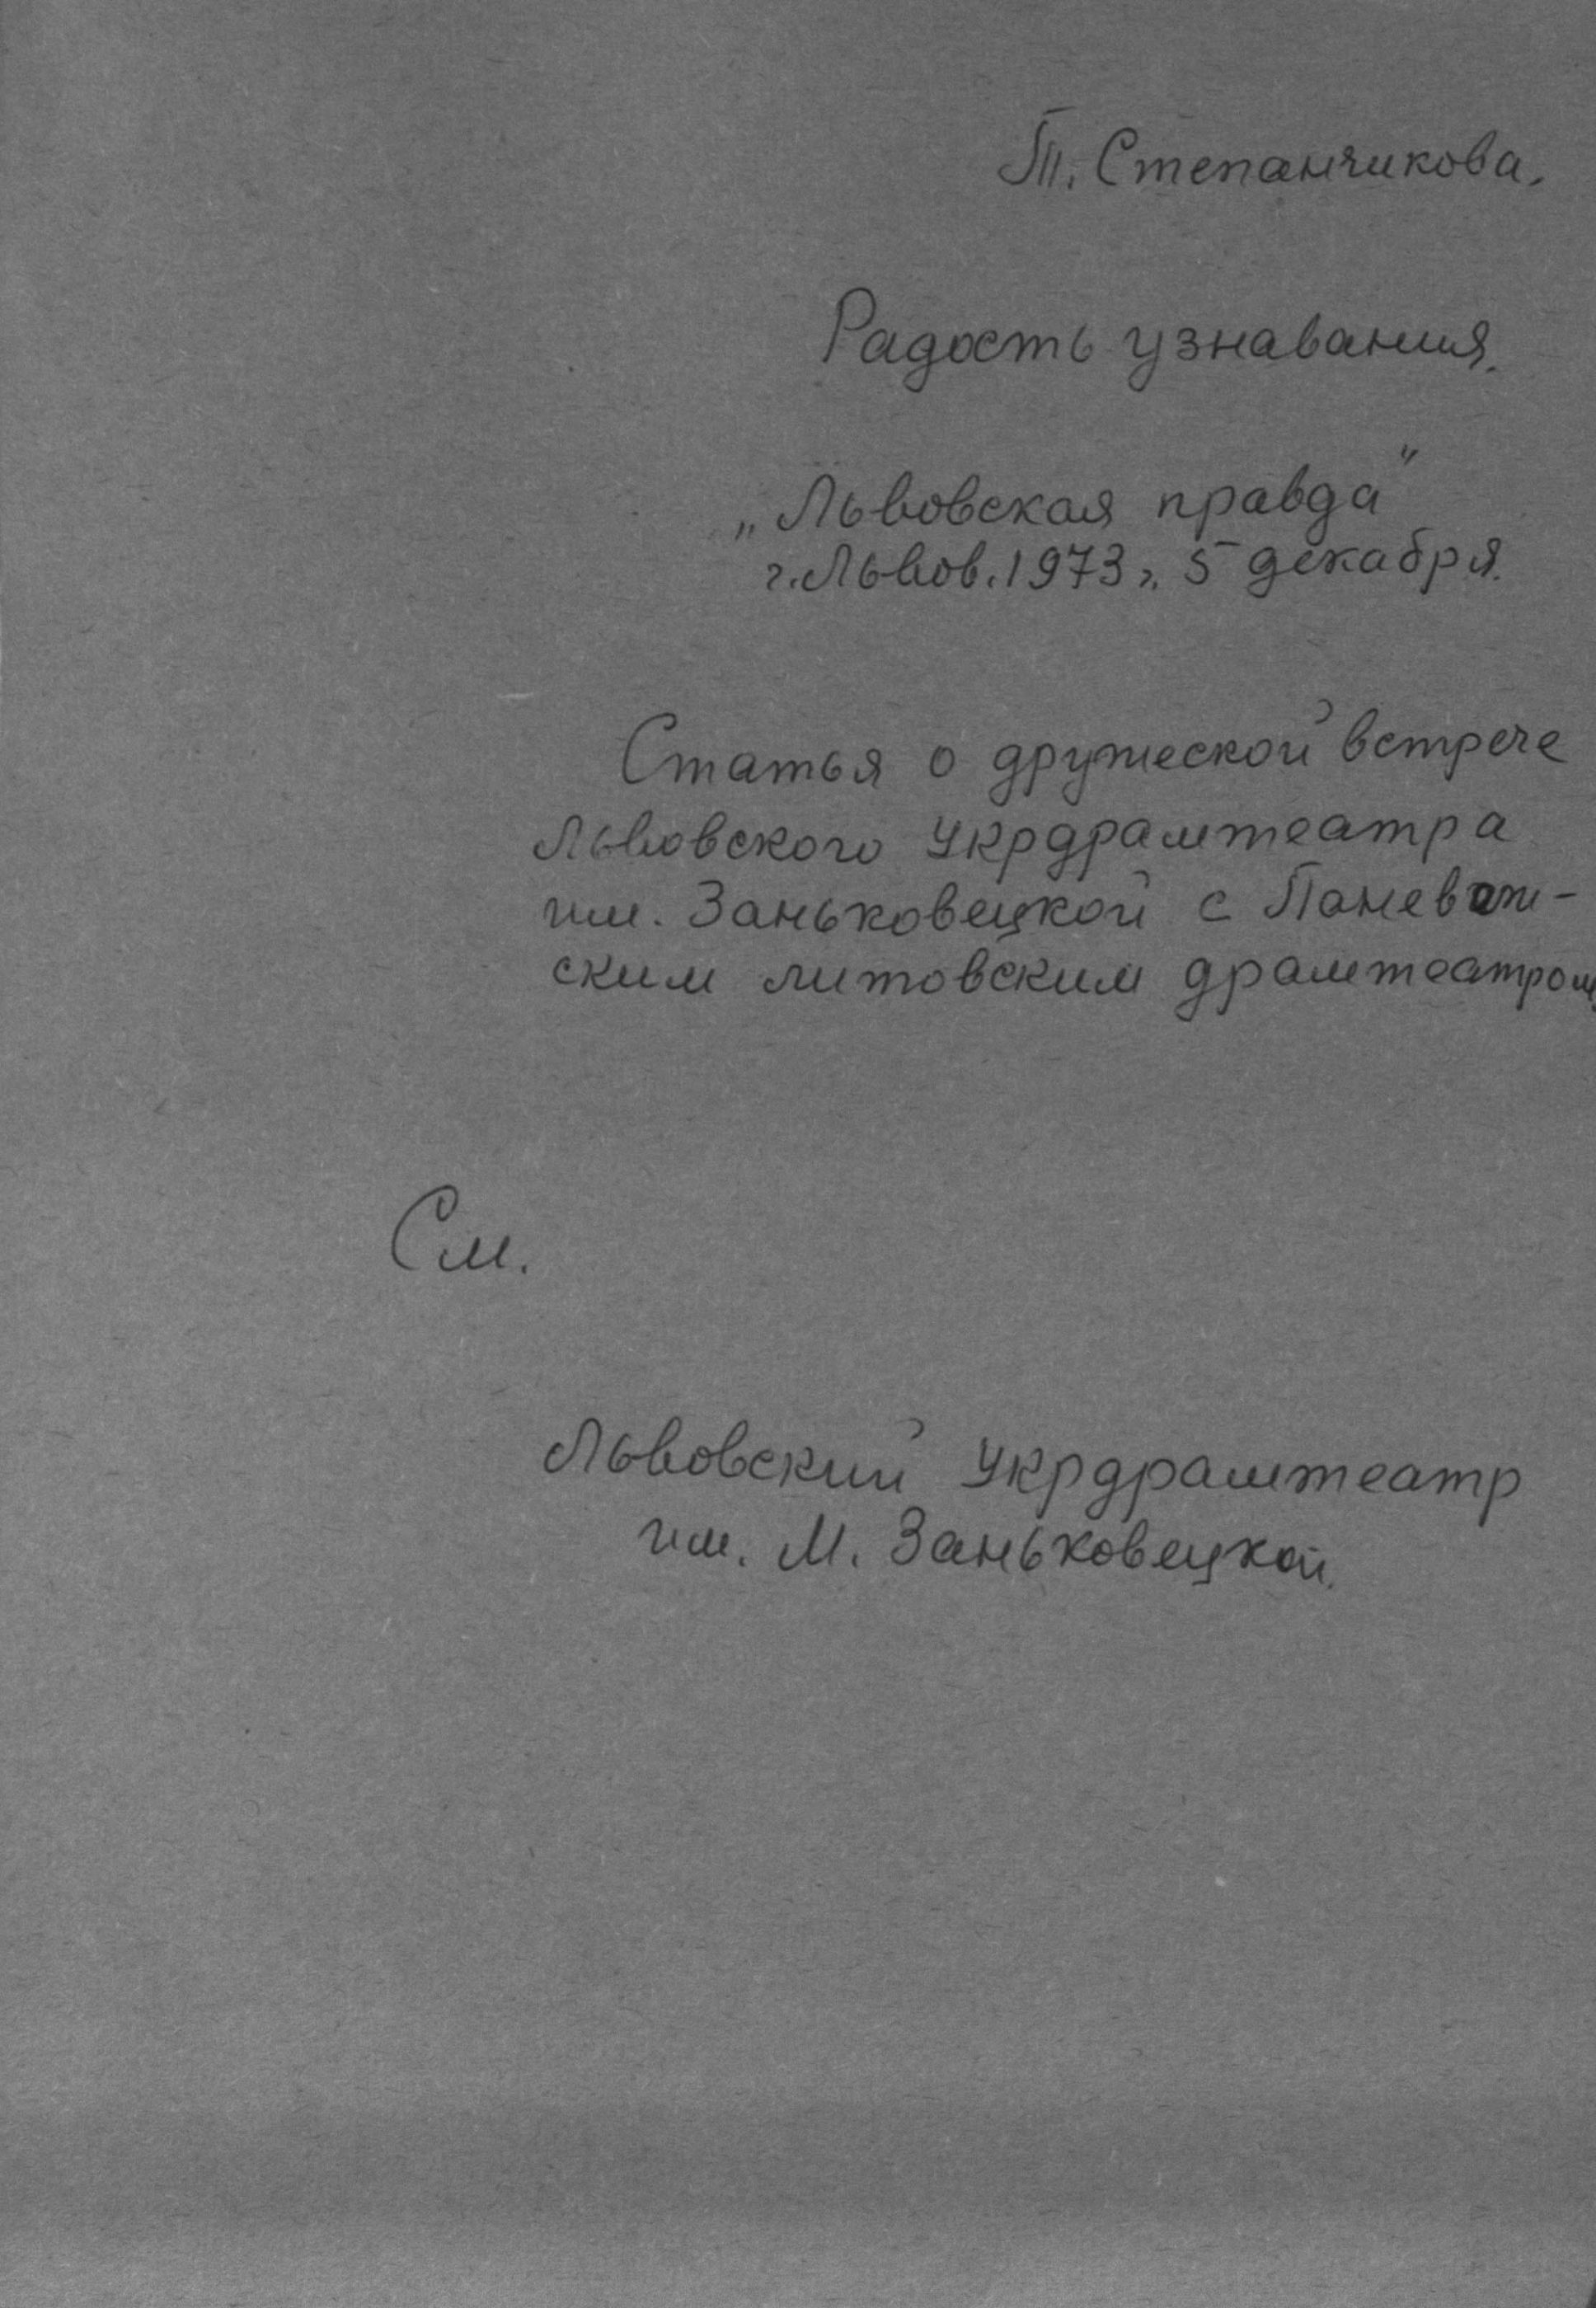 Т. Степанчикова.
Радость узнавания.
„Львовская правда"
г. Львов. 1973 г. 5 декабря.
Статья о дружеской встрече
Львовского Укрдрамтеатра
им. Заньковецкой с Паневеж-
ским литовским драмтеатром
См.
Львовский Укрдрамтеатр
им. М. Заньковецкой.